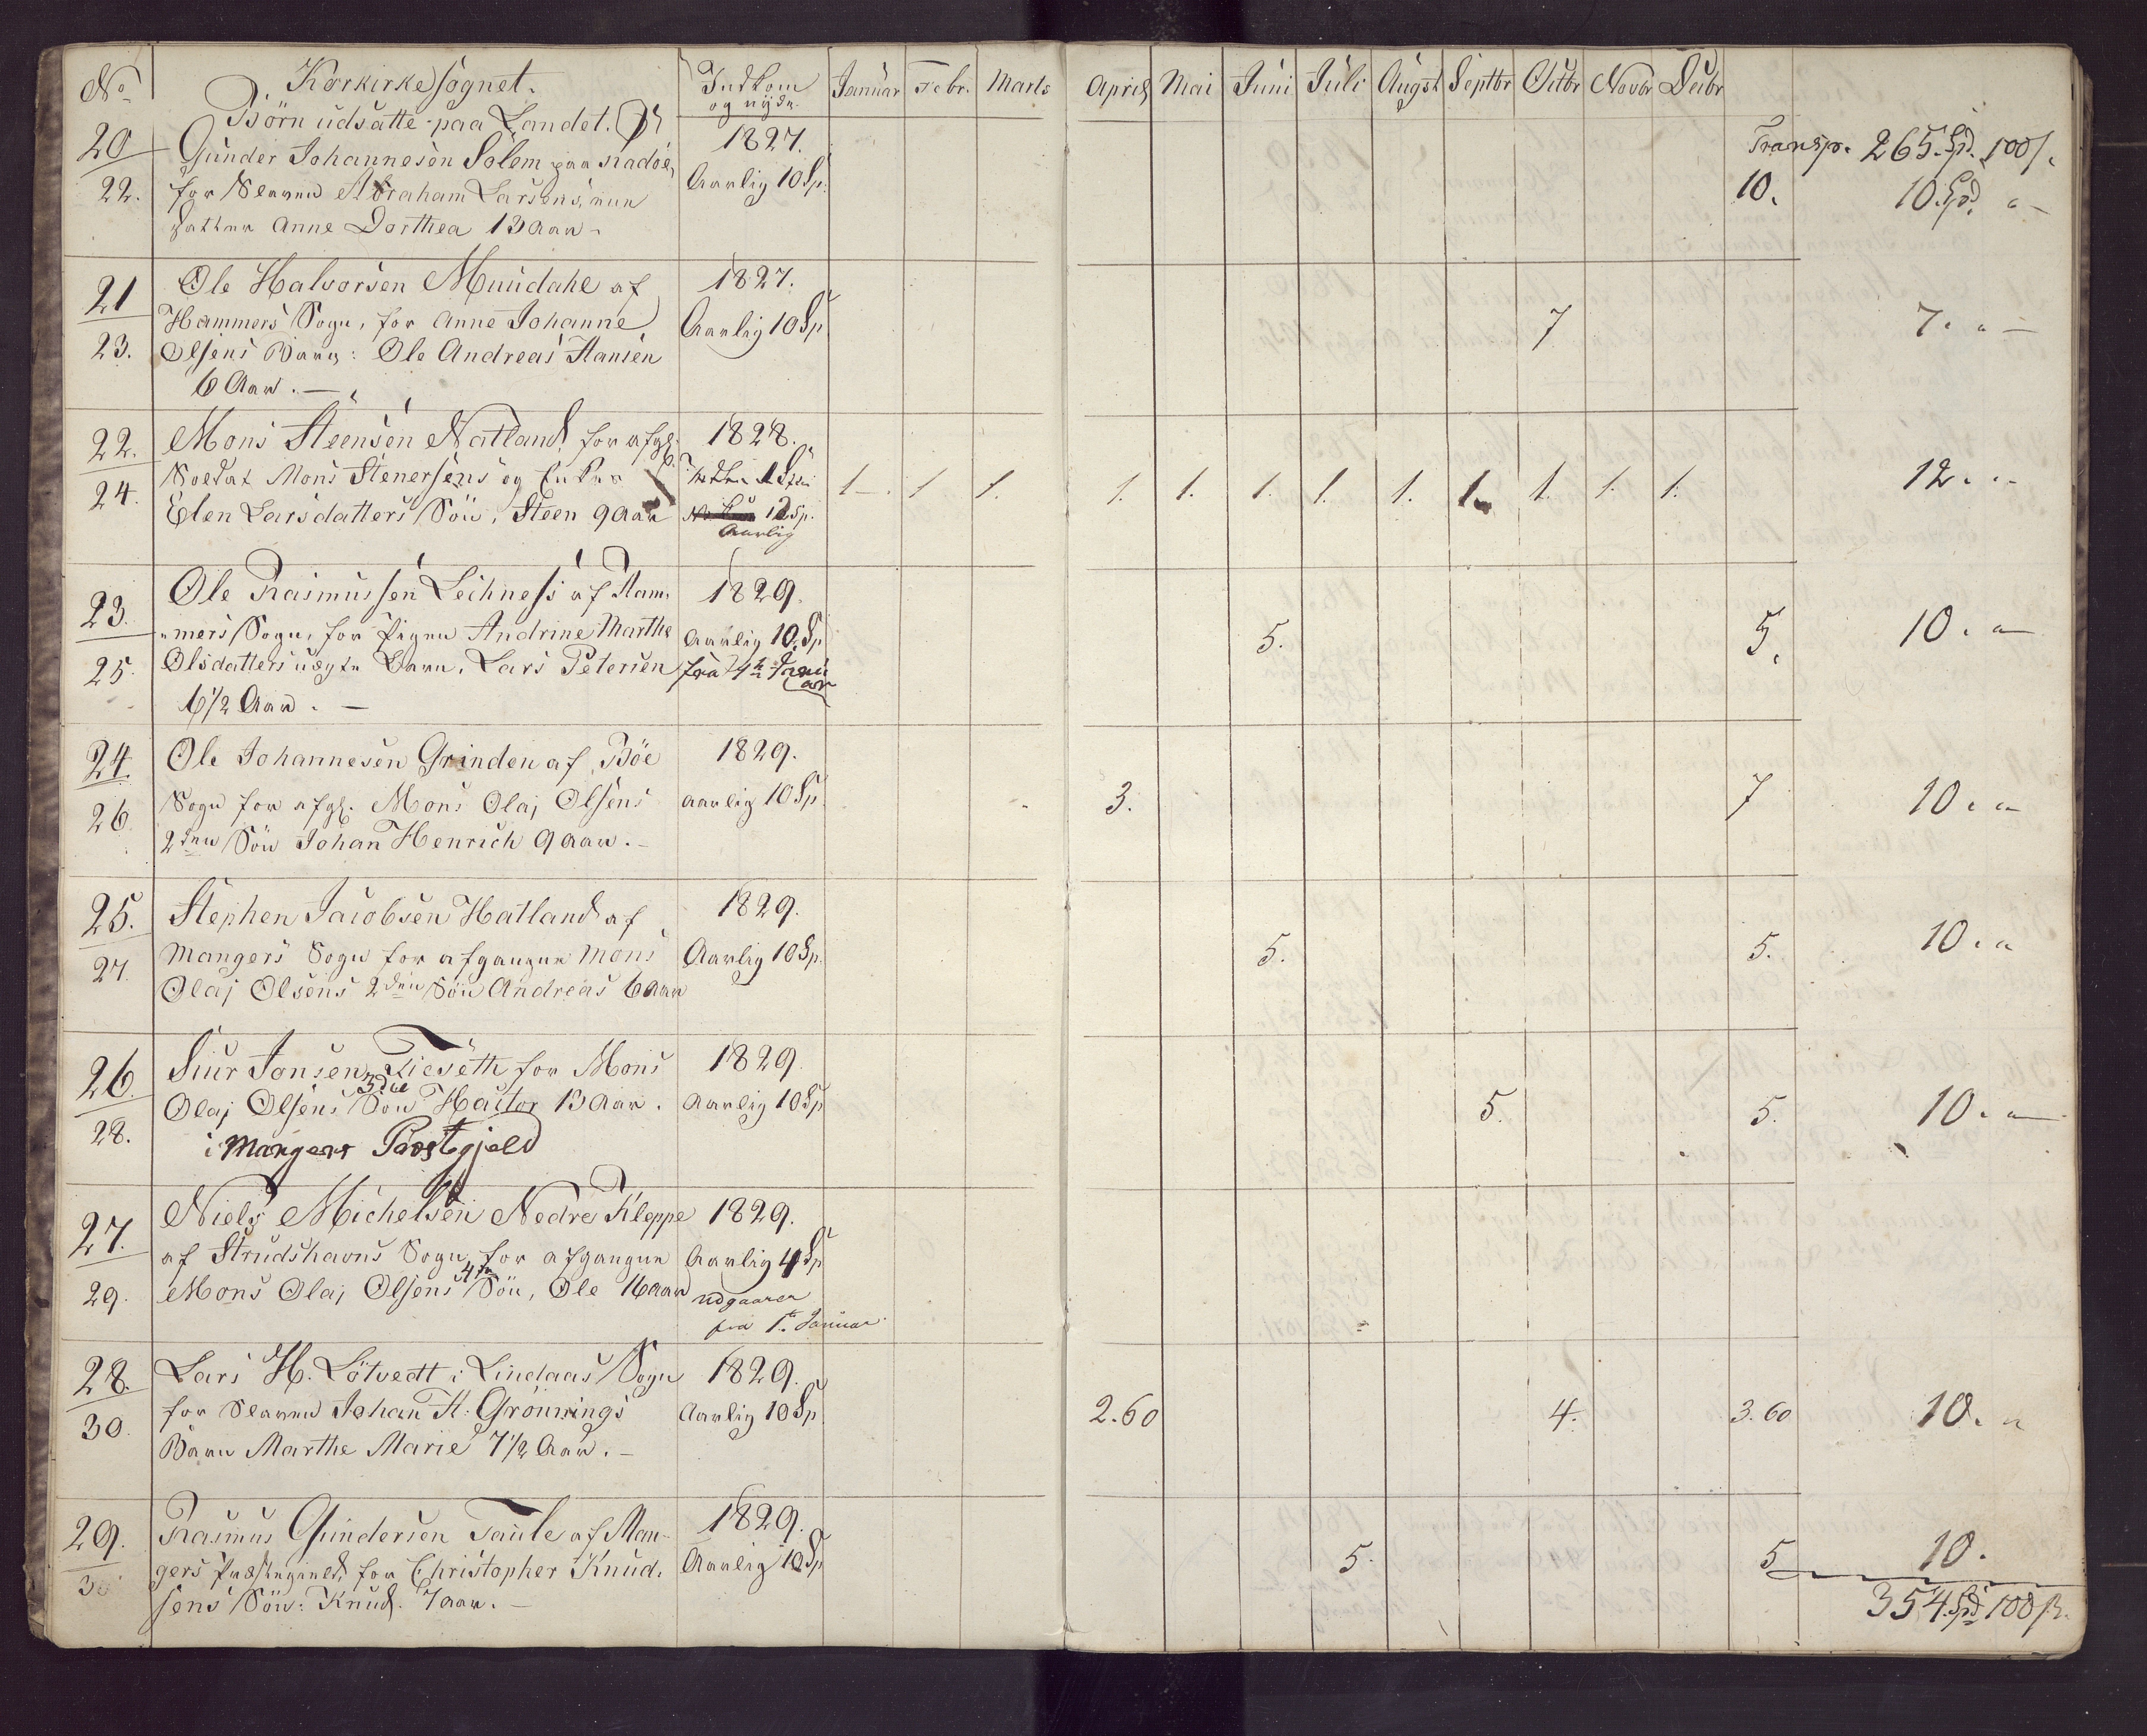 No Korkirkesognet. Indkom og nyde Januar Febr. Marts April Mai Juni Juli Augst Septbr Octbr Novbr Decbr
Börn udsatte paa Landet.
20 Gunder Johannesen Solem paa Radöe, 1827. Transp. 265. Spd. 100 s.
22. for Slaven Abraham Larsens, Aarlig 10 Sp. 10. 10. Spd. "
Datter Anne Dorthea 13 Aar -
21 Ole Halvorsen Muudahl af 1827.
Hammers Sogn, for Anne Johanne Aarlig 10 Sp 7 7. " -
23. Olsens Barn: Ole Andreas Hansen
6 Aar. -
22. Mons Steensen Natland for afg. 1828.
Soldat Mons Stenersens og Enke 1 Sp 1 1 1. 1. 1. 1. 1. 1. 1. 1. 1. 1. 12. "
24. Elen Larsdatters Sön, Steen 9 Aar 12 Sp.
Aarlig
23. Ole Rasmussen Leihness af Ham- 1829.
mers Sogn, for Pigen Andrine Marthe Aarlig 10 Sp 5. 5. 10. "
25. Olsdatters uægte Barn, Lars Petersen fra
6 1/2 Aar. -
24. Ole Johannesen Grinden af Böe 1829.
26. Sogn for afg. Mons Olaj Olsens aarlig 10 Sp 3. 7 10. "
2den Sön Johan Henrich 9 Aar. -
25. Stephen Jacobsen Hatland af 1829.
27. Mangers Sogn for afgangne Mons Aarlig 10 Sp. 5. 5. 10. "
Olaj Olsens 2den Sön Andreas 6 Aar
26. Siur Jansen Tieseth for Mons 1829.
3die
Olaj Olsens Sön Hactor 13 Aar. Aarlig 10 Sp 5. 5. 10. "
28. i Mangers Præstegjeld
27. Niels Michelsen Nedre Kleppe 1829.
af Strudshavns Sogn, for afgangne Aarlig 4 Sp
4de
29. Mons Olaj Olsens Sön, Ole 16 Aar udgaaer
fra 1te Januar
28. Lars H. Lötvedt i Lindaas Sogn 1829.
30. for Slaven Johan H. Grönnings Aarlig 10 Sp 2.60 4. 3.60 10. "
Barn Marthe Marie 7 1/2 Aar. -
29. Rasmus Gundersen Taule af Man- 1829.
gers Præstegield, for Christopher Knud- Aarlig 10 Sp 5. 5 10.
sens Sön: Knud. 7 aar. - 354. Spd 100 s.